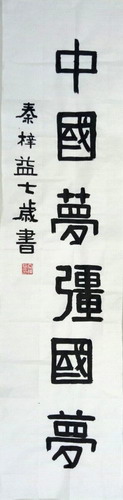 中國夢彊國夢
秦梓益七歲書